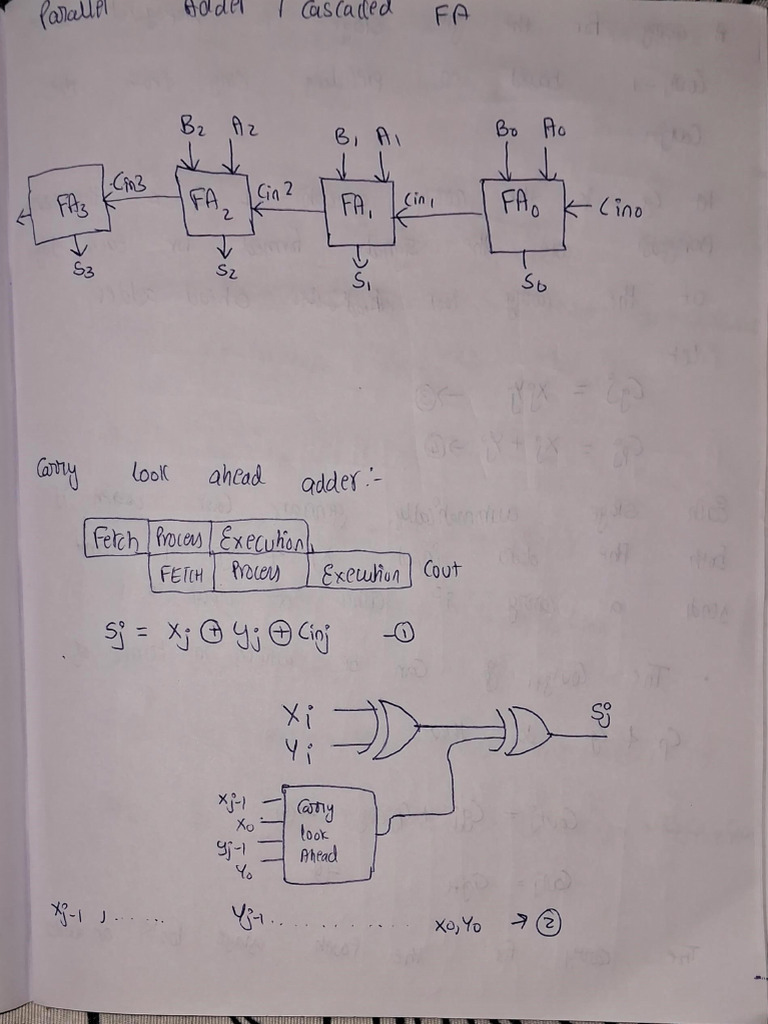 Parallel Adder / Cascaded FA
B2 A2 B1 A1 B0 A0
FA3 Cin3 FA2 Cin2 FA1 Cin1 FA0 Cin0
S3 S2 S1 S0
Carry look ahead adder :-
Fetch Process Execution
FETCH Process Execution Cout
Sj = Xj ⊕ Yj ⊕ Cinj —①
Xi
Yi
Sj
Xj-1
X0
Yj-1
Y0
Carry
look
Ahead
Xj-1 , ...... Yj-1 ............... X0, Y0 → ②